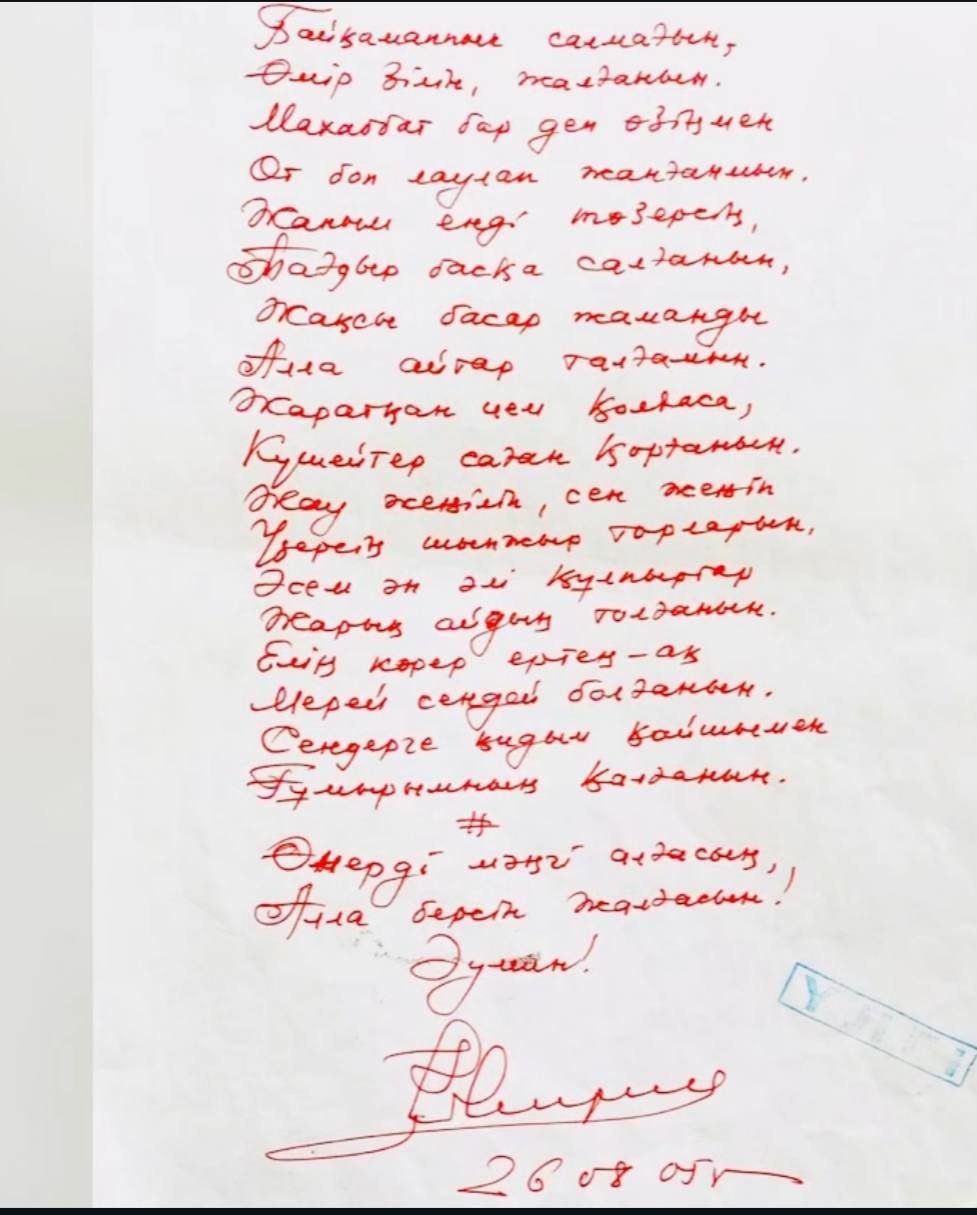 Байқамаппын салмағын,
Өмір зілін, жалғанын.
Махаббат бар деп өзіңмен
От боп лаулап жанғанмын.
Жаным енді төзерсің,
Тағдыр басқа салғанын,
Жақсы басар жаманды
Алла айтар талғамын.
Жаратқан ием қолдаса,
Күшейтер саған қорғанын.
Жау жеңіліп, сен жеңіп
Үзерсің шынжыр торларын,
Әсем ән әлі құлпыртар
Жарық айдың толғанын.
Елің көрер ертең-ақ
Мерей сендей болғанын.
Сендерге қидым қайшымен
Ғұмырымның қалғанын.
#
Өнерді мәңгі алғасың,
Алла берсін жалғасын!
Әумин!
26 08 05г